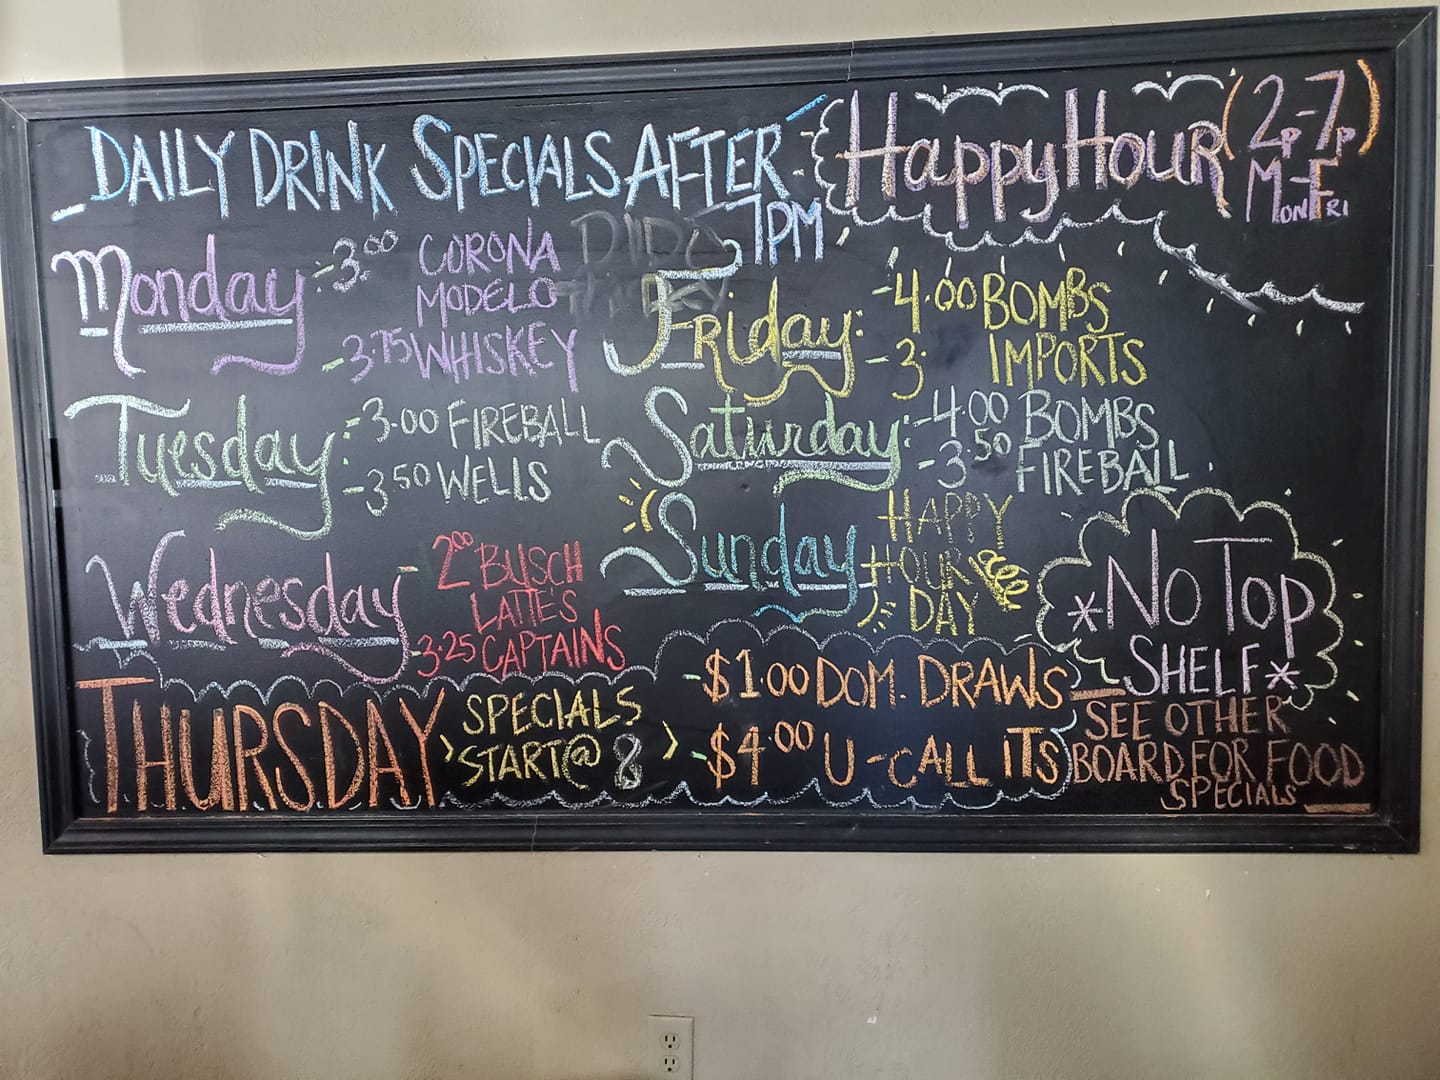 DAILY DRINK SPECIALS AFTER
7PM
Happy Hour (2p-7p)
MON-FRI
Monday: -3.00 CORONA
MODELO
-3.75 WHISKEY
Tuesday: -3.00 FIREBALL
-3.50 WELLS
Wednesday - 2.00 BUSCH
LATTE'S
-3.25 CAPTAINS
Friday: -4.00 BOMBS
-3. IMPORTS
Saturday: -4.00 BOMBS
-3.50 FIREBALL
Sunday HAPPY
HOUR
DAY
THURSDAY
SPECIALS
START@ 8
-$1.00 DOM. DRAWS
-$4.00 U-CALL ITS
*NO TOP
SHELF*
SEE OTHER
BOARD FOR FOOD
SPECIALS